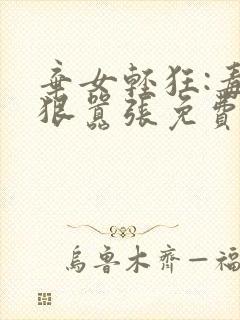 棄女輕狂:毒
狠囂張免費
烏魯木齊—福